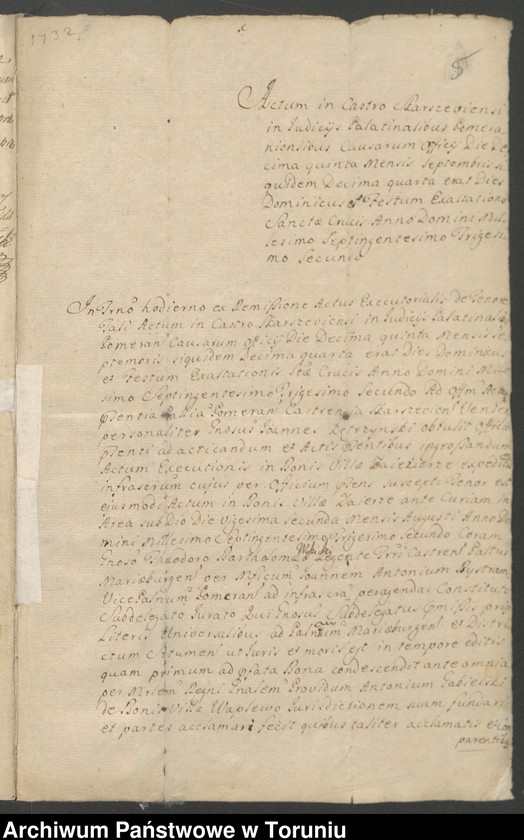 1732.
8
Actum in Castro Skarszeviensi
in Judicijs Palatinalibus Pomera
niensibus Causarum Officij Die De
cima quinta Mensis Septembris si
quidem Decima quarta erat Dies
Dominicus et Festum Exaltationis
Sanctæ Crucis Anno Domini Mil
lesimo Septingentesimo Trigesi
mo Secundo
In hodierno ex Remissione Actus Executorialis de Tenore
Tali Actum in Castro Skarszeviensi in Judicijs Palatinalib
Pomeran Causarum Officij Die Decima quinta Mensis Se
ptembris siquidem Decima quarta erat Dies Dominicus
et Festum Exaltationis Stæ Crucis Anno Domini Mille
simo Septingentesimo Trigesimo Secundo Ad Offm
Pomeran Castrensia Skarszevien Veniens
personaliter Gnosus Joannes obtulit Officio
ptenti ad acticandum et Actis ptentibus ingrossandum
Actum Executionis in Bonis Villæ expedit
infrascrum cujus per Officium ptens suscepti Tenor est
ejusmodi Actum in Bonis Villæ Zaierte ante Curiam in
Area sub Dio Die vigesima secunda Mensis Augusti Anno Do
mini Millesimo Septingentesimo Trigesimo Secundo Coram
Gnoso Theodoro Bartholomeo Regente Castren Pallus
Mariæburgen per Mficum Joannem Antonium Bystram
Vice Palnum Pomeran ad infrascra peragenda Constituto
Subdelegato Jurato Qui Gnosus Subdelegatus præ
Literis Universalibus ad Palnum Mariæburgen et Distri
ctum uti Juris et moris est in tempore editis
quam primum ad pfata Bona condescendit ante omnia
per Mrlem Regni Gnalem Providum Antonium
de Bonis Villæ Waplewo Jurisdictionem suam fundari
et partes acclamari fecit quibus taliter acclamatis et Com
parentib
Archiwum Państwowe w Toruniu